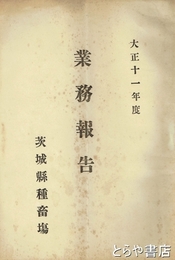 大正十一年度
業務報告
茨城縣種畜場
とらや書店